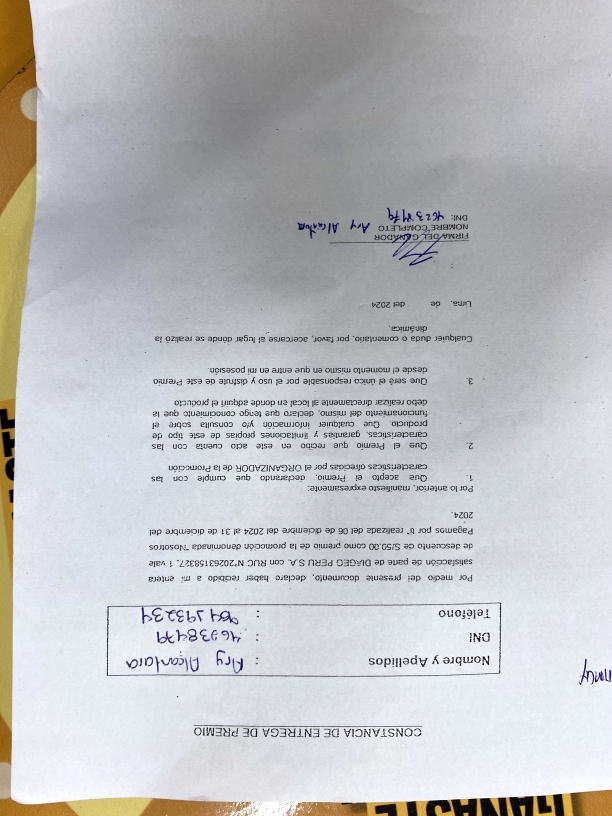 CONSTANCIA DE ENTREGA DE PREMIO
Nombre y Apellidos : Ary Alcantara
DNI : 46238479
Telefono :
Por medio del presente documento, declaro haber recibido a mi entera
satisfacción de parte de DIAGEO PERU S.A. con RUC N°20263158327, 1 vale
de descuento de S/50.00 como premio de la promoción denominada "Nosotros
Pagamos por ti" realizada del 06 de diciembre del 2024 al 31 de diciembre del
2024.
Por lo anterior, manifiesto expresamente:
1. Que acepto el Premio, declarando que cumple con las
características ofrecidas por el ORGANIZADOR de la Promoción
2. Que el Premio que recibo en este acto cuenta con las
características, garantías y limitaciones propias de este tipo de
producto Que cualquier información y/o consulta sobre el
funcionamiento del mismo, declaro que tengo conocimiento que la
debo realizar directamente al local en donde adquirí el producto
3. Que seré el único responsable por el uso y disfrute de este Premio
desde el momento mismo en que entre en mi posesión.
Cualquier duda o comentario, por favor, acercarse al lugar dónde se realizó la
dinámica.
Lima, de del 2024
FIRMA DEL GANADOR
NOMBRE COMPLETO Ary Alcantara
DNI: 46238479
GANASTE